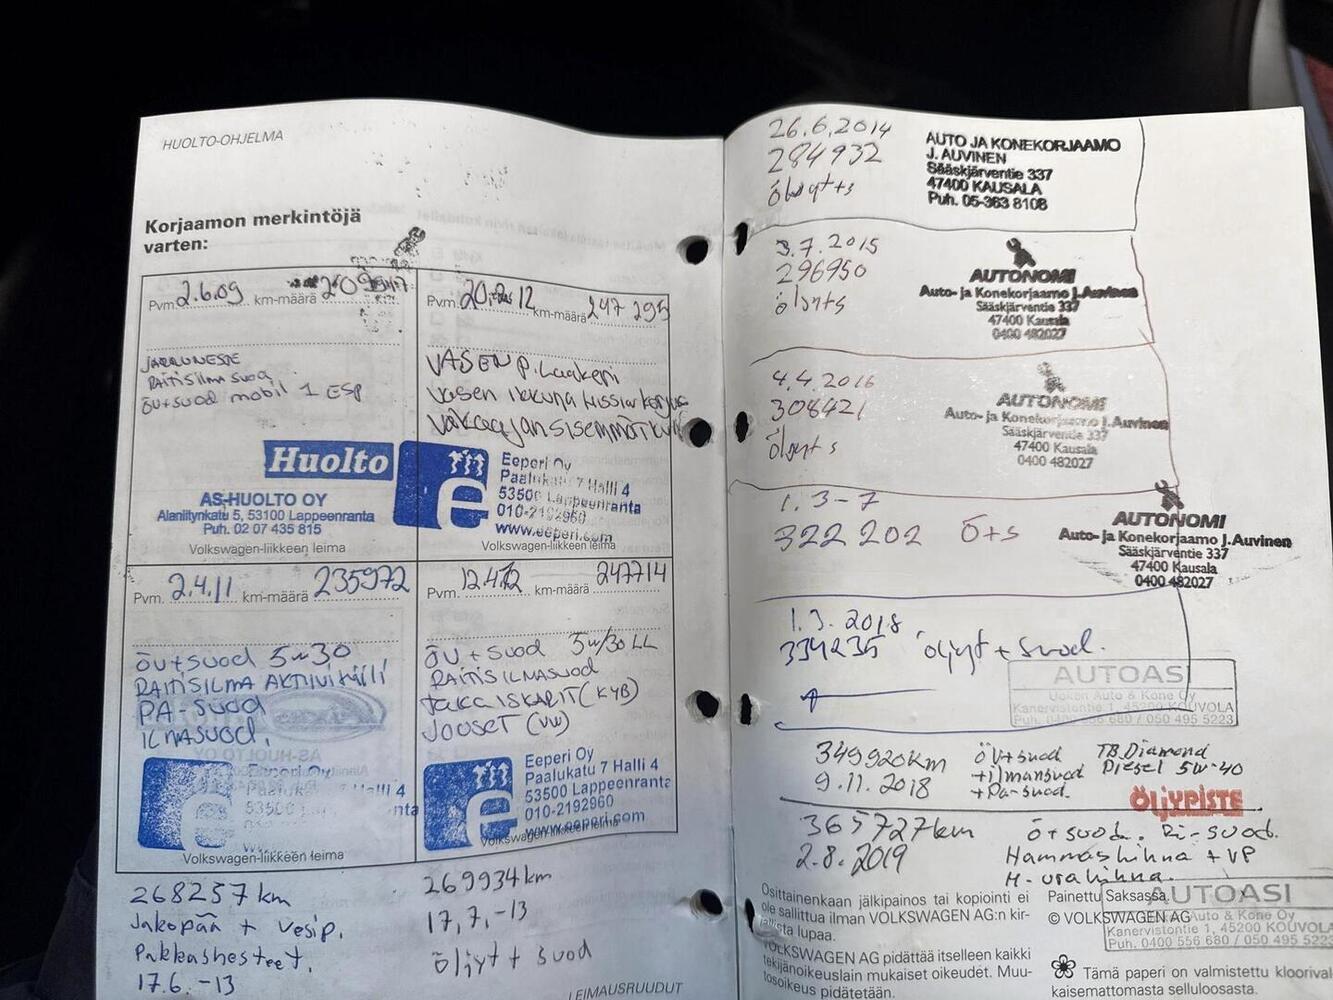 HUOLTO-OHJELMA
Korjaamon merkintöjä
varten:
Pvm. 2.6.09 km-määrä
JARRUNESTE
RAITISILMA SUOD
ÖV+SUOD mobil 1 ESP
Huolto
AS-HUOLTO OY
Alanliitynkatu 5, 53100 Lappeenranta
Puh. 02 07 435 815
Volkswagen-liikkeen leima
Pvm. km-määrä 247 295
VASEN P. Laakeri
Vasen ikkuna hissin korjus
Eeperi Oy
Paalukatu 7 Halli 4
53500 Lappeenranta
010-2192960
www.eeperi.com
Volkswagen-liikkeen leima
Pvm. 2.4.11 km-määrä 235972
ÖV+SUOD 5W30
RAITISILMA AKTIVIHIILI
PA-SUOD
ILMASUOD.
Eeperi Oy
Paalukatu 7 Halli 4
Volkswagen-liikkeen leima
Pvm. 12.4.12 km-määrä 247714
ÖV + SUOD 5W/30 LL
RAITISILMASUOD
TAKA ISKARIT (KYB)
JOUSET (VW)
Eeperi Oy
Paalukatu 7 Halli 4
53500 Lappeenranta
010-2192960
www.eeperi.com
Volkswagen-liikkeen leima
268257 km
Jakopää + Vesip.
Pakkashesteet.
17.6.-13
269934 km
17.7.-13
öljyt + suod
LEIMAUSRUUDUT
26.6.2014
284932
öljyt+s
AUTO JA KONEKORJAAMO
J. AUVINEN
Sääskjärventie 337
47400 KAUSALA
Puh. 05-363 8108
3.7.2015
296950
öljyt+s
AUTONOMI
Auto- ja Konekorjaamo J.Auvinen
Sääskjärventie 337
47400 Kausala
0400 482027
4.4.2016
308421
öljyt s
AUTONOMI
Auto- ja Konekorjaamo J.Auvinen
Sääskjärventie 337
47400 Kausala
0400 482027
1.3-7
322 202 Ö+s
AUTONOMI
Auto- ja Konekorjaamo J.Auvinen
Sääskjärventie 337
47400 Kausala
0400 482027
1.3.2018
334235 öljyt + suod.
AUTOASI
Auto & Kone Oy
Kanervistontie 1, 45200 KOUVOLA
Puh. 0400 556 680 / 050 495 5223
349920km öV+suod TB Diamond
9.11.2018 +ilmansuod Diesel 5W-40
+Pa-suod.
ÖLJYPISTE
365727km ö+suod. Ri-suod.
2.8.2019 Hammashihna + VP
H-urahihna.
AUTOASI
Auto & Kone Oy
Kanervistontie 1, 45200 KOUVOLA
Puh. 0400 556 680 / 050 495 5223
Osittainenkaan jälkipainos tai kopiointi ei
ole sallittua ilman VOLKSWAGEN AG:n kir-
jallista lupaa.
VOLKSWAGEN AG pidättää itselleen kaikki
tekijänoikeuslain mukaiset oikeudet. Muu-
tosoikeus pidätetään.
Painettu Saksassa
© VOLKSWAGEN AG
Tämä paperi on valmistettu kloorival-
kaisemattomasta selluloosasta.